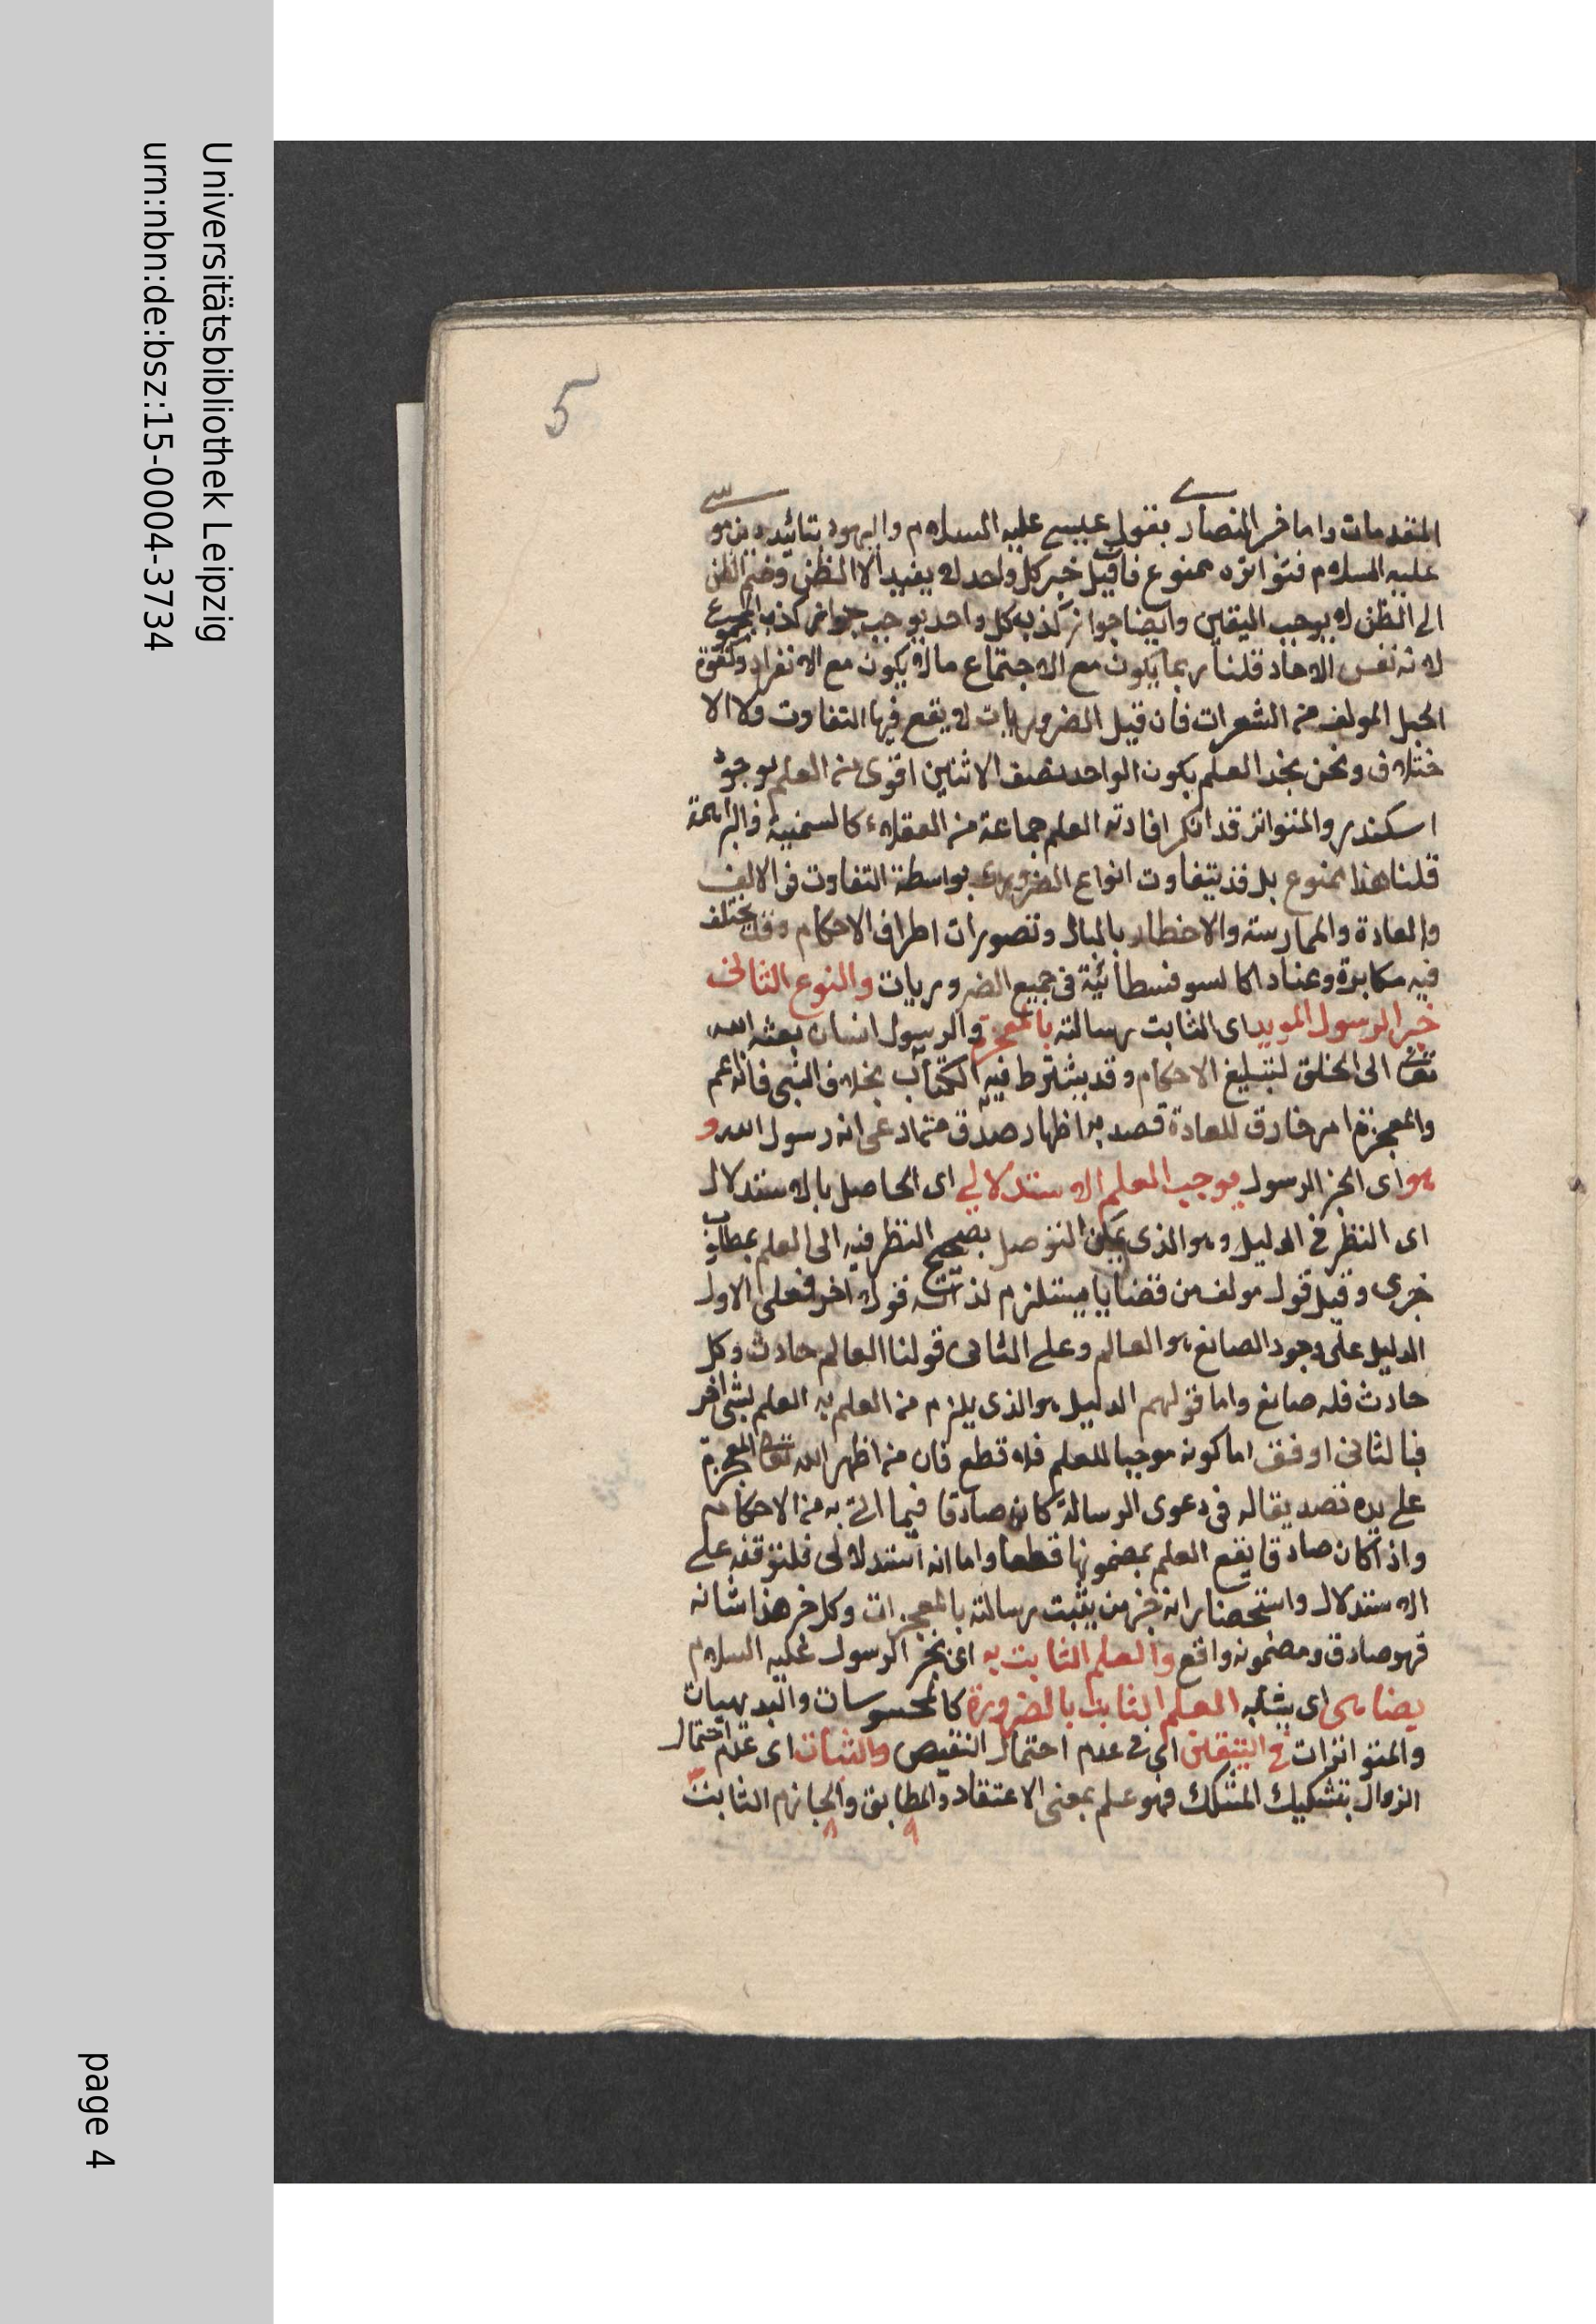 5
المقدمات واما خبر النصارى بقول عيسى عليه السلام واليهود بتائيد دين موسى
عليه السلام فتواتره ممنوع فان قيل خبر كل واحد لا يفيد الا الظن وضم الظن
الى الظن لا يوجب اليقين وايضا جواز كذب كل واحد يوجب جواز كذب المجموع
لانه نفس الاحاد قلنا ربما يكون مع الاجتماع ما لا يكون مع الانفراد وكقوة
الحبل المولف من الشعرات فان قيل الضروريات لا يقع فيها التفاوت ولا الا
ختلاف ونحن نجد العلم بكون الواحد نصف الاثنين اقوى من العلم بوجود
اسكندر والمتواتر قد انكر افادته العلم جماعة من العقلاء كالسمنية والبراهمة
قلنا هذا ممنوع بل قد يتفاوت انواع الضروري بواسطة التفاوت فى الالف
والعادة والممارسة والاخطار بالبال وتصورات اطراف الاحكام وقد يختلف
فيه مكابرة وعنادا كالسوفسطائية فى جميع الضروريات والنوع الثانى
خبر الرسول المويد اى الثابت رسالته بالمعجزة والرسول انسان بعثه الله
تعالى الى الخلق لتبليغ الاحكام وقد يشترط فيه الكتاب بخلاف النبى فانه اعم
والمعجزة امر خارق للعادة قصد به اظهار صدق من ادعى انه رسول الله و
هو اى الخبر الرسول يوجب العلم الاستدلالي اى الحاصل بالاستدلال
اى النظر في الدليل وهو الذى يمكن التوصل بصحيح النظر فيه الى العلم بمطلوب
خبرى وقيل قول مولف من قضايا يستلزم لذاته قولا اخر فعلى الاول
الدليل على وجود الصانع هو العالم وعلى الثانى قولنا العالم حادث وكل
حادث فله صانع واما قولهم الدليل هو الذى يلزم من العلم به العلم بشئ اخر
فبالثانى اوفق اما كونه موجبا للعلم فلا قطع فان من اظهر الله تعالى المعجزة
على يده تصديقا له فى دعوى الرسالة كان صادقا فيما اتى به من الاحكام
واذا كان صادقا يقع العلم بمضمونها قطعا واما انه استدلالى فلتوقفه على
الاستدلال واستحضار انه خبر من يثبت رسالته بالمعجزات وكل خبر هذا شانه
فهو صادق ومضمونه واقع والعلم الثابت به اى بخبر الرسول عليه السلام
يضاهى اى يشابه العلم الثابت بالضرورة كالمحسوسات والبديهيات
والمتواترات في التيقن اى فى عدم احتمال النقيض والثبات اى عدم احتمال
الزوال بتشكيك المشكك فهو علم بمعنى الاعتقاد والمطابق والجازم الثابت
Universitätsbibliothek Leipzig
urn:nbn:de:bsz:15-0004-3734
page 4